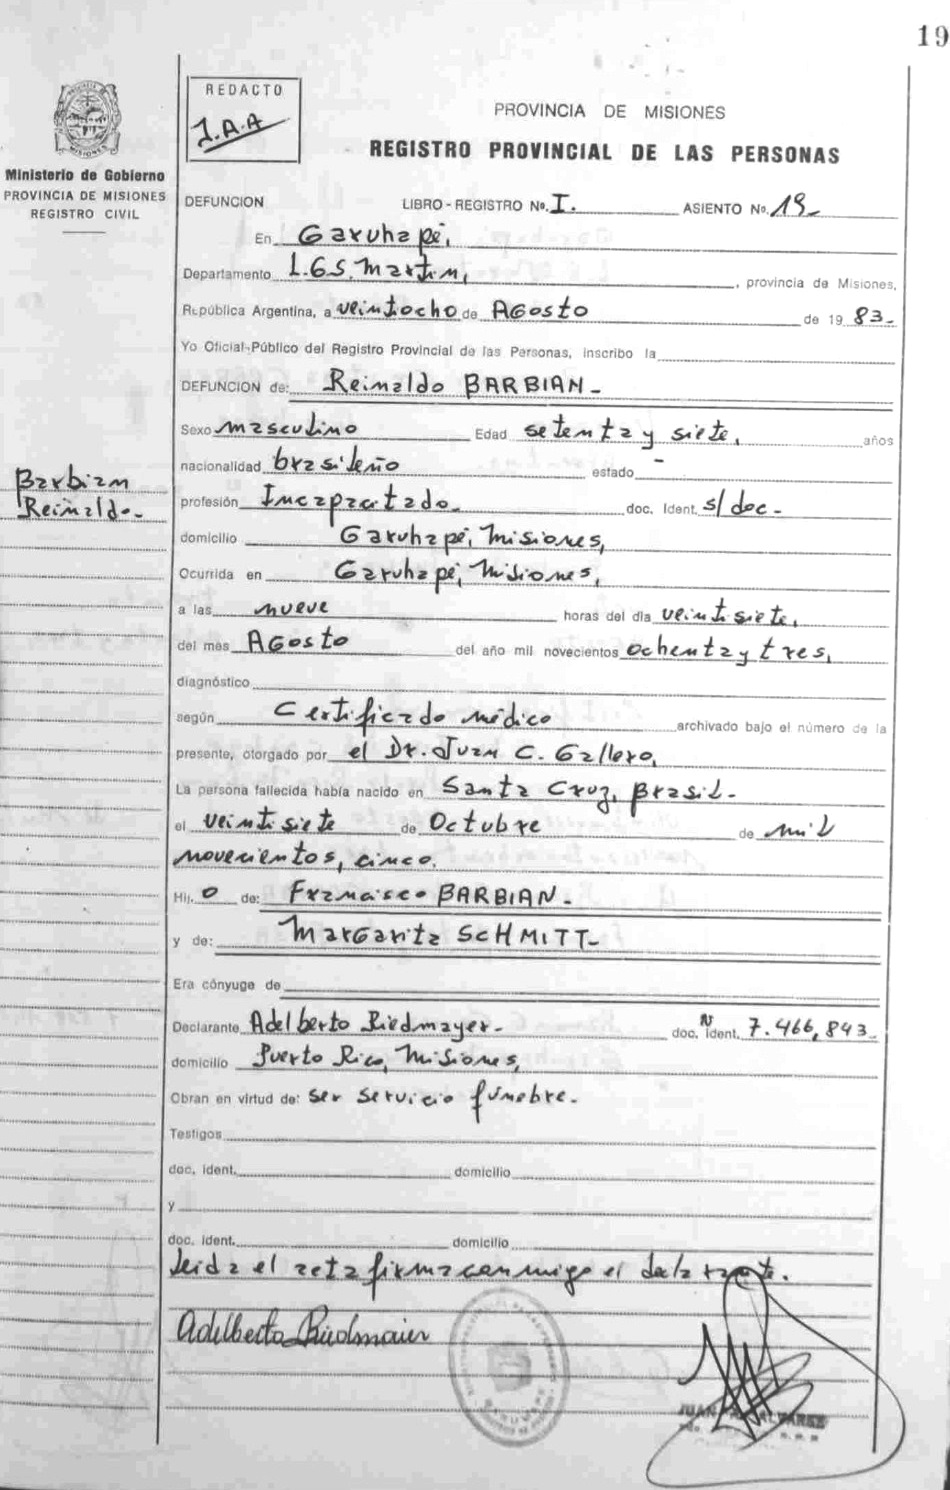 19
REDACTO
J.A.A
PROVINCIA DE MISIONES
REGISTRO PROVINCIAL DE LAS PERSONAS
Ministerio de Gobierno
PROVINCIA DE MISIONES
REGISTRO CIVIL
DEFUNCION LIBRO - REGISTRO No. I. ASIENTO No. 19-
En Garuhapé,
Departamento L.G.S. Martin, , provincia de Misiones,
República Argentina, a veintocho de Agosto de 19 83-
Yo Oficial-Público del Registro Provincial de las Personas, inscribo la
DEFUNCION de: Reinaldo BARBIAN-
Sexo masculino Edad setenta y siete, años
nacionalidad brasileño estado -
Barbian
Reinaldo-
profesión Incapacitado- doc. Ident. s/doc-
domicilio Garuhapé, Misiones,
Ocurrida en Garuhapé, Misiones,
a las nueve horas del día veintisiete,
del mes Agosto del año mil novecientos ochenta y tres,
diagnóstico
según Certificado médico archivado bajo el número de la
presente, otorgado por el Dr. Juan C. Gallero,
La persona fallecida había nacido en Santa Cruz, Brasil-
el veintisiete de Octubre de mil
novecientos, cinco.
Hij. o de: Francisco BARBIAN-
y de: Margarita SCHMITT-
Era cónyuge de
Declarante Adelberto Riedmayer- doc. Ident. N 7.466,843-
domicilio Puerto Rico, Misiones,
Obran en virtud de: ser servicio fúnebre-
Testigos
doc. Ident. domicilio
y
doc. Ident. domicilio
Leida el acta firma conmigo el declarante.
Adelberto Riedmaier
JUAN ALVAREZ